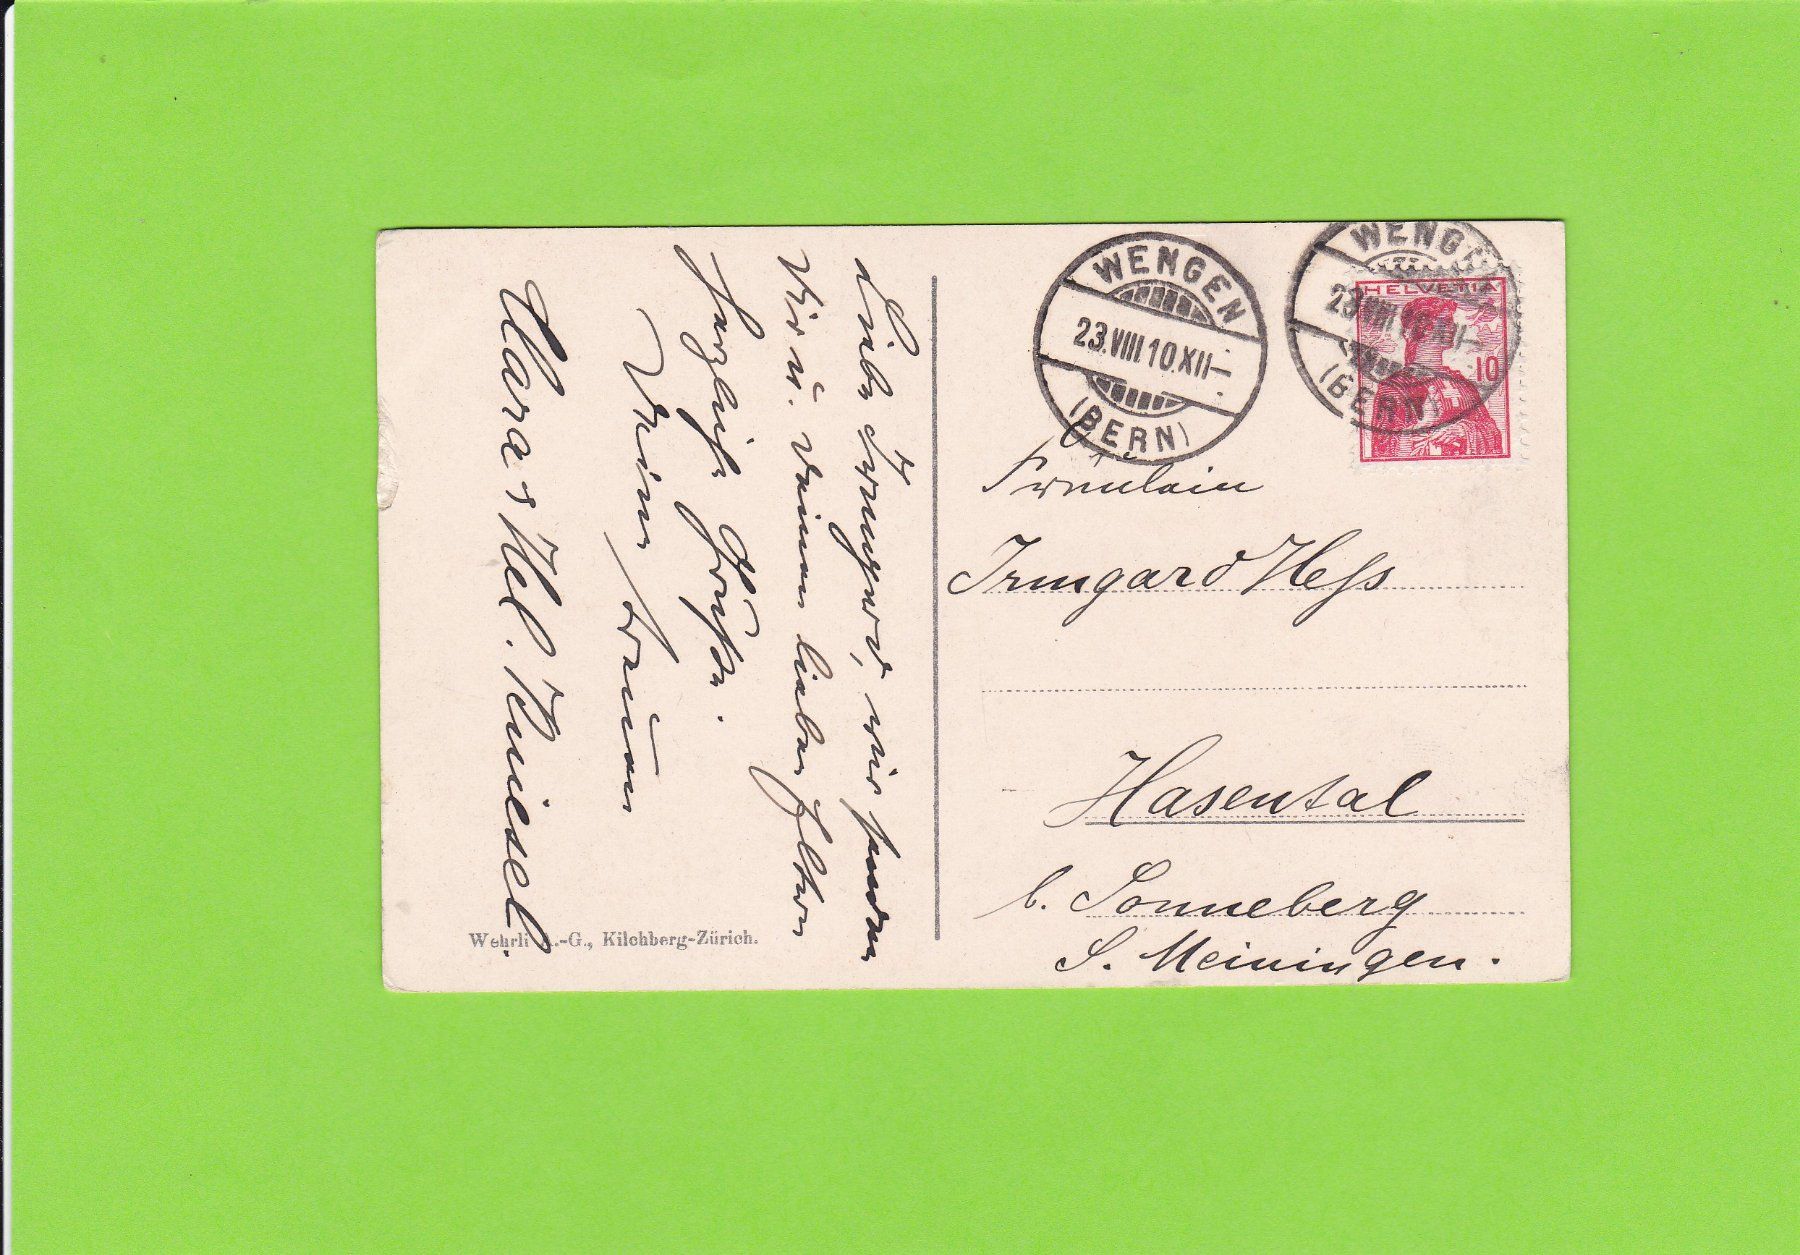 Liebe Irmgard, wir senden
Dir u. Deinen lieben Eltern
herzliche Grüße.
Deine treuen
Clara & Hel. Kniesel.
Wehrli A.-G., Kilchberg-Zürich.
WENGEN
23.VIII.10.XII–
(BERN)
WENGEN
23.VIII.10.XII–
(BERN)
HELVETIA
10
Fräulein
Irmgard Heſs
Hasental
b. Sonneberg
S. Meiningen.